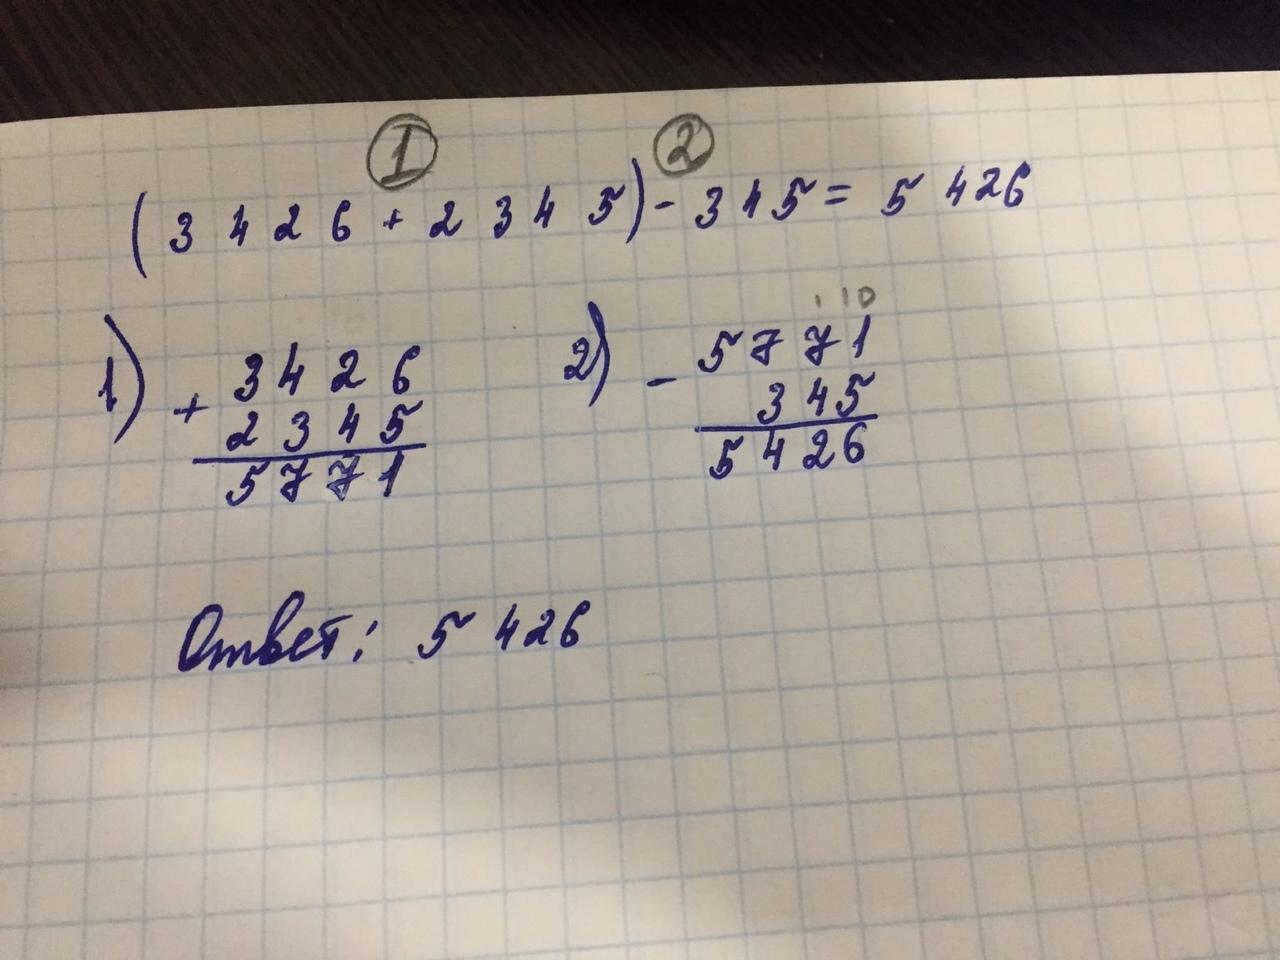 1 2
(3 4 2 6 + 2 3 4 5) - 3 4 5 = 5 426
1) + 3 4 2 6
2 3 4 5
5 7 7 1
2) - . 10
5 7 7 1
3 4 5
5 4 2 6
Ответ: 5 426